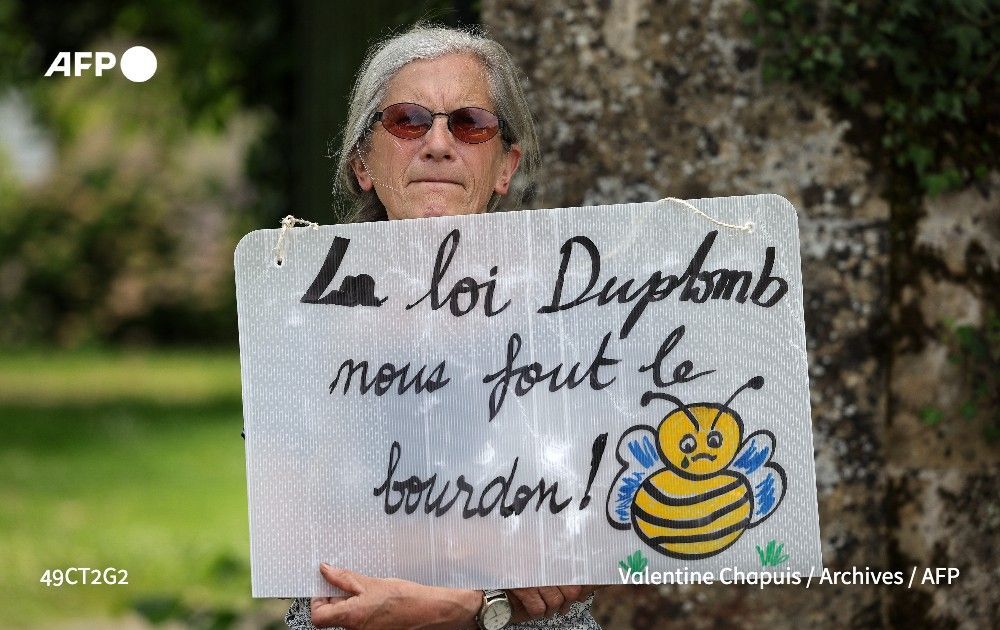 AFP
La loi Duplomb
nous fout le
bourdon !
49CT2G2
Valentine Chapuis / Archives / AFP